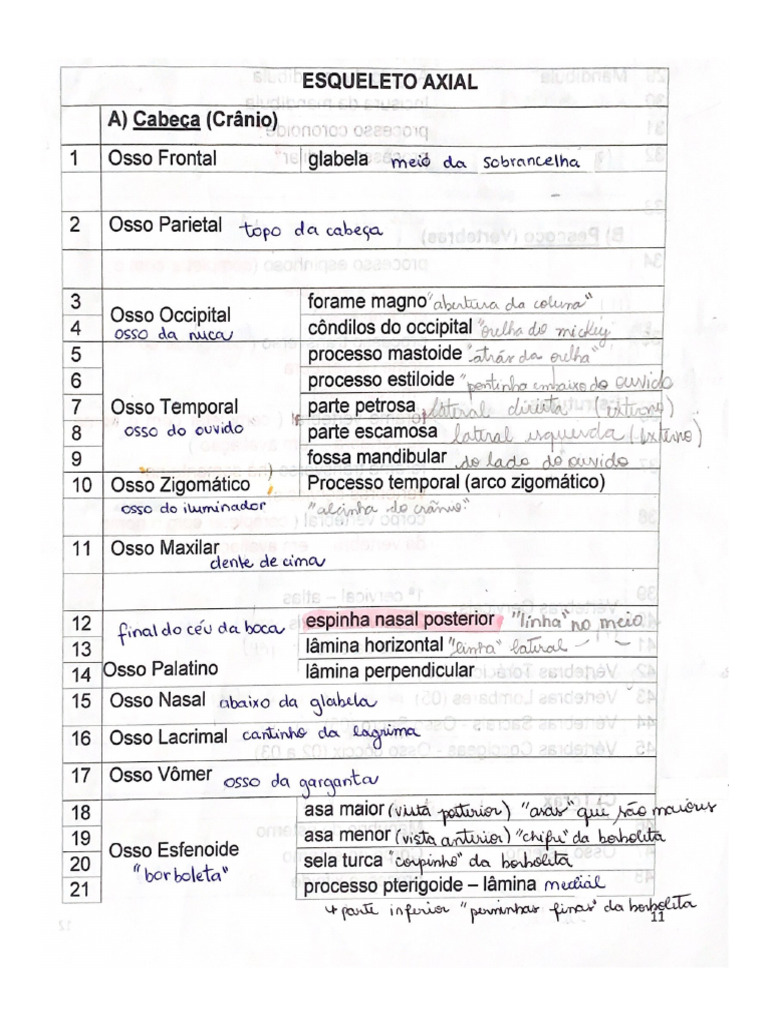 ESQUELETO AXIAL
A) Cabeça (Crânio)
1 Osso Frontal glabela meio da sobrancelha
2 Osso Parietal topo da cabeça
3 forame magno "abertura da coluna"
Osso Occipital
4 osso da nuca côndilos do occipital "orelha do mickey"
5 processo mastoide "atrás da orelha"
6 processo estiloide "pontinha embaixo do ouvido
7 Osso Temporal parte petrosa lateral direita (externo)
8 osso do ouvido parte escamosa lateral esquerda (externo)
9 fossa mandibular do lado do ouvido
10 Osso Zigomático Processo temporal (arco zigomático)
osso do iluminador "alcinha do crânio"
11 Osso Maxilar
dente de cima
12 final do céu da boca espinha nasal posterior "linha" no meio
13 lâmina horizontal "linha" lateral
14 Osso Palatino lâmina perpendicular
15 Osso Nasal abaixo da glabela
16 Osso Lacrimal cantinho da lagrima
17 Osso Vômer osso da garganta
18 asa maior (vista posterior) "asas" que são maiores
19 asa menor (vista anterior) "chifre" da borboleta
Osso Esfenoide
20 "borboleta" sela turca "corpinho" da borboleta
21 processo pterigoide – lâmina medial
↳ parte inferior "perninhas finas" da borboleta
11